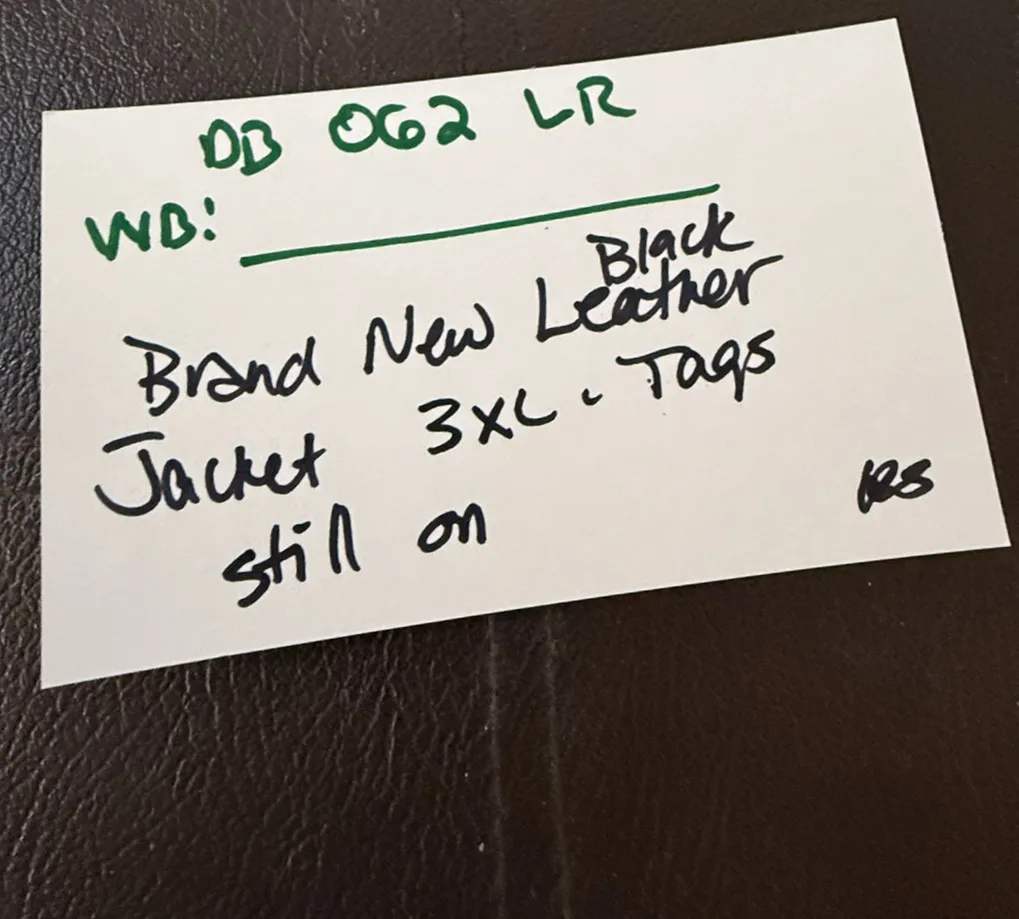 DB 062 LR
WB:
Black
Brand New Leather
Jacket 3XL. Tags
still on